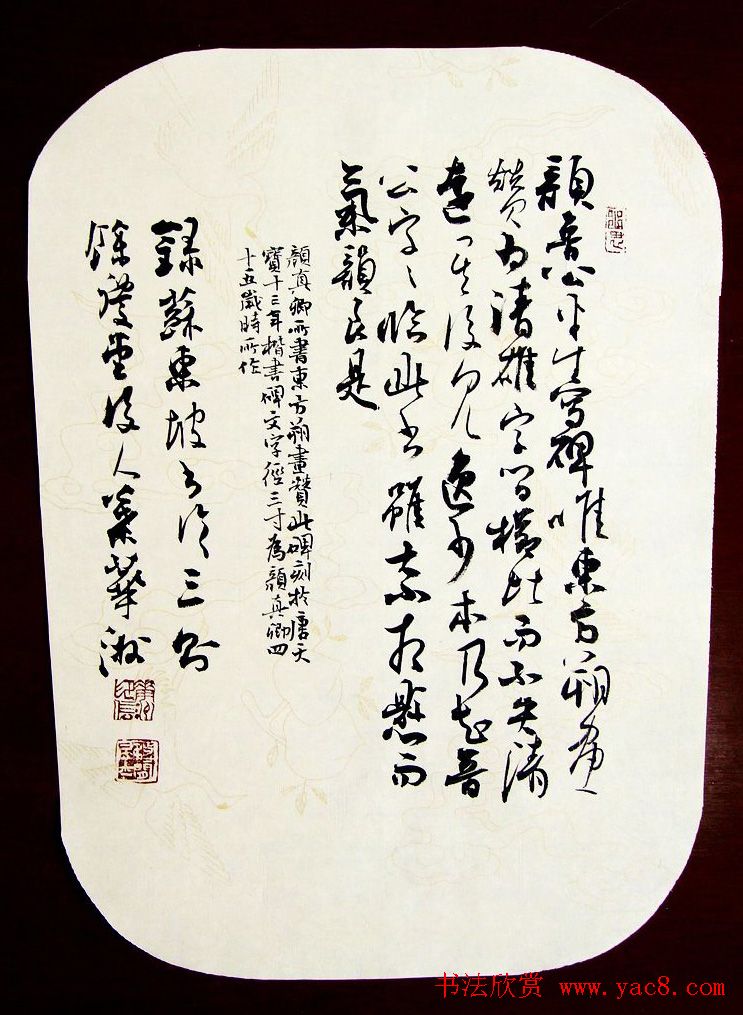 顏魯公平生寫碑唯東方朔畫
贊為清雄字間櫛比而不失清
遠其後見逸少本乃知魯
公字字臨此書雖大小相懸而
氣韻良是
顏真卿所書東方朔畫贊此碑刻於唐天
寶十三年楷書碑文字徑三寸為顏真卿四
十五歲時所作
錄蘇東坡書論三則
堂後人葉華
书法欣赏 www.yac8.com